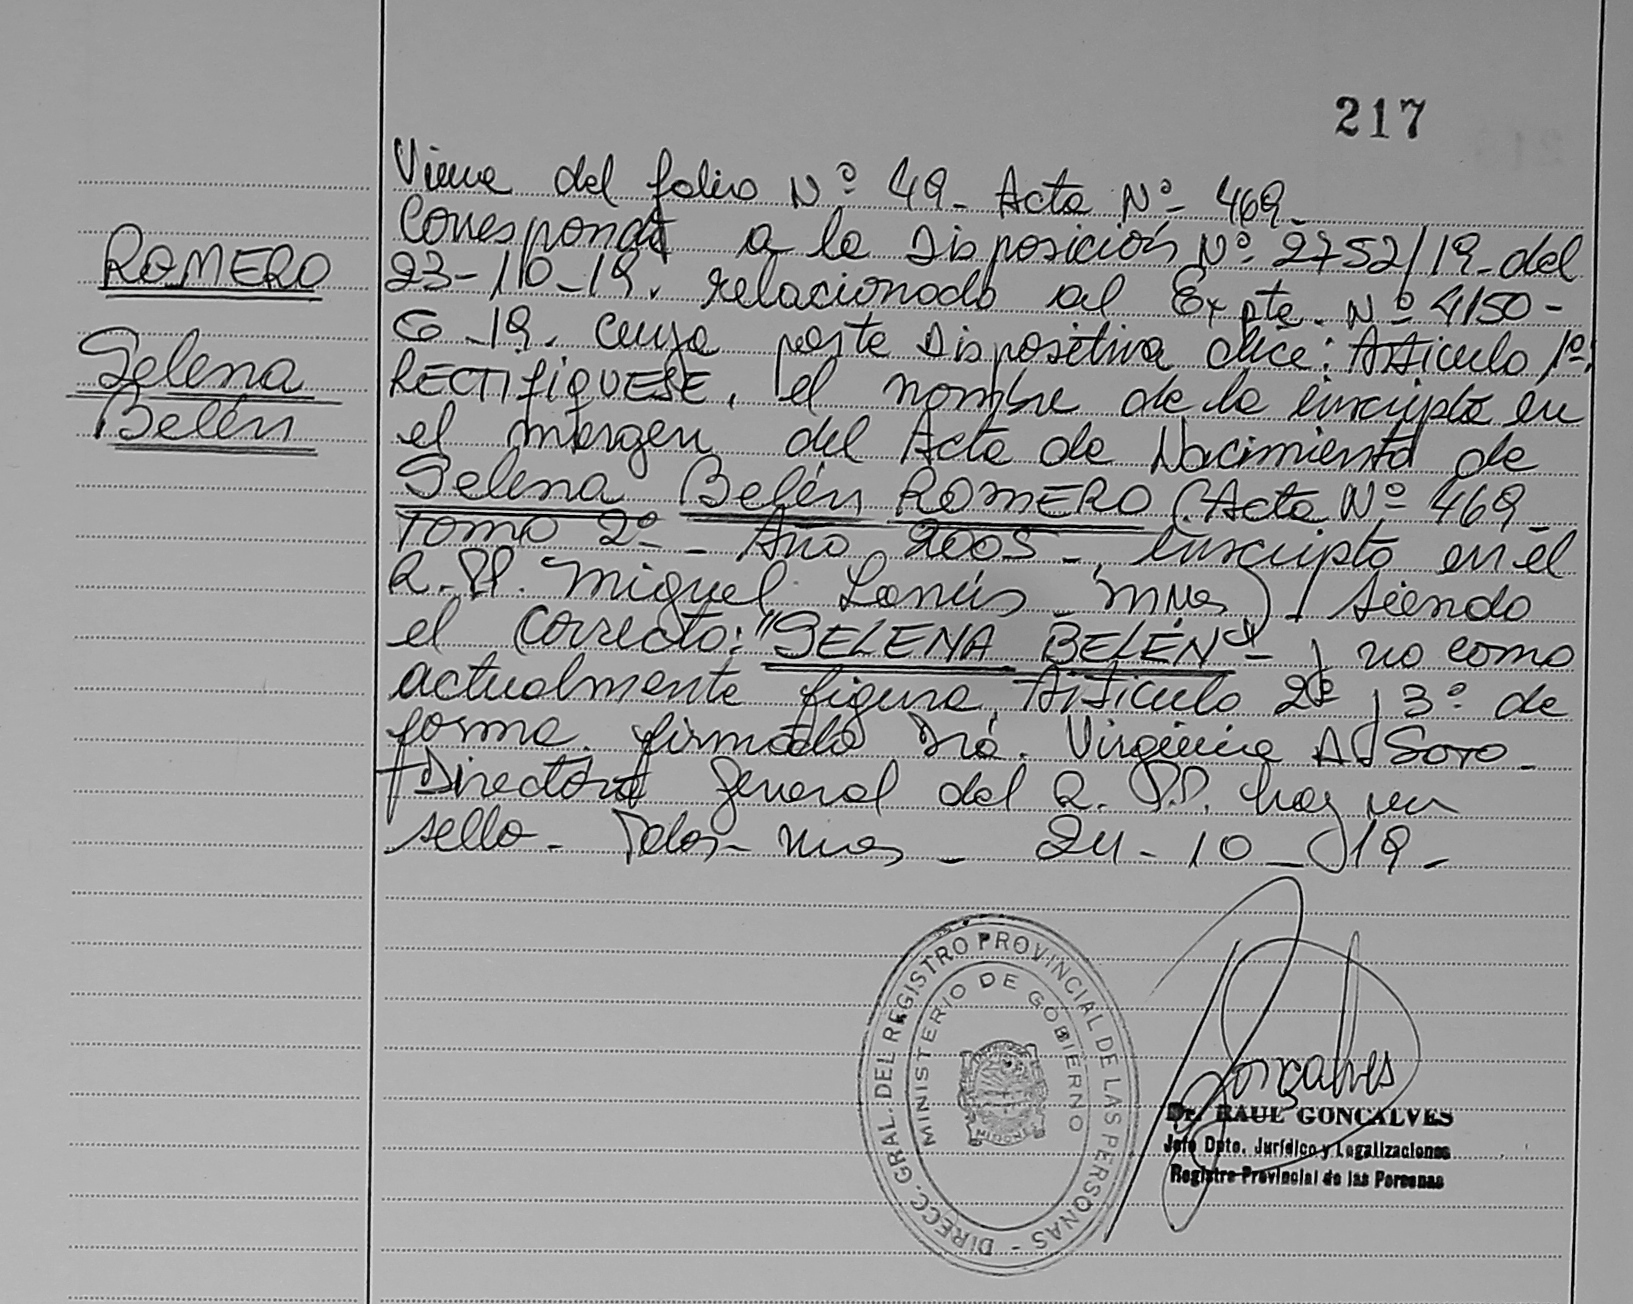 217
Viene del folio Nº 49 - Acta Nº 469 -
ROMERO
Selena
Belén
Corresponde a la Disposición Nº 2752/19 - del
23-10-19. relacionado al Expte. Nº 4150 -
G - 19. Cuya parte Dispositiva dice: Artículo 1º:
RECTIFIQUESE, el nombre de la inscripta en
el margen del Acta de Nacimiento de
Selena Belén ROMERO (Acta Nº 469 -
Tomo 2º - Año 2005 - inscripta en el
R.PP. Miguel Lanús - Mnes) Siendo
el correcto: "SELENA BELÉN" - y no como
actualmente figura. Artículo 2º y 3º de
forma. firmado Dra. Virginia A. Soto -
Directora General del R.P.P. hay un
sello - Pdas - Mnes - 24 - 10 - 19 -
DIRECC. GRAL. DEL REGISTRO PROVINCIAL DE LAS PERSONAS -
MINISTERIO DE GOBIERNO
MISIONES
Gonçalves
Dr. RAUL GONCALVES
Jefe Dpto. Jurídico y Legalizaciones
Registro Provincial de las Personas